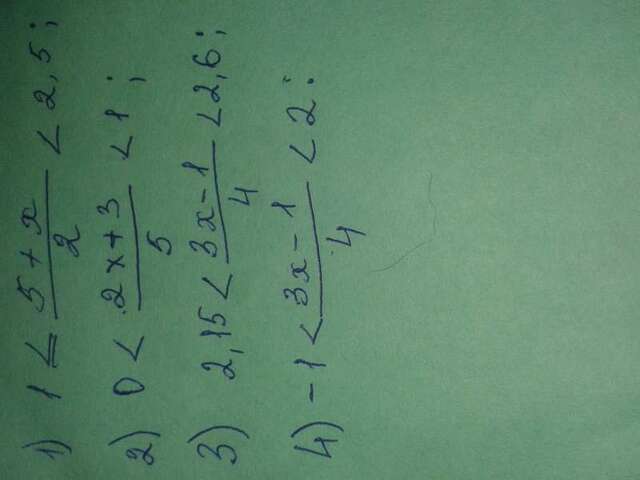 1) 1 ≤ (5+x)/2 < 2,5;
2) 0 < (2x+3)/5 < 1;
3) 2,15 < (3x-1)/4 < 2,6;
4) -1 < (3x-1)/4 < 2: